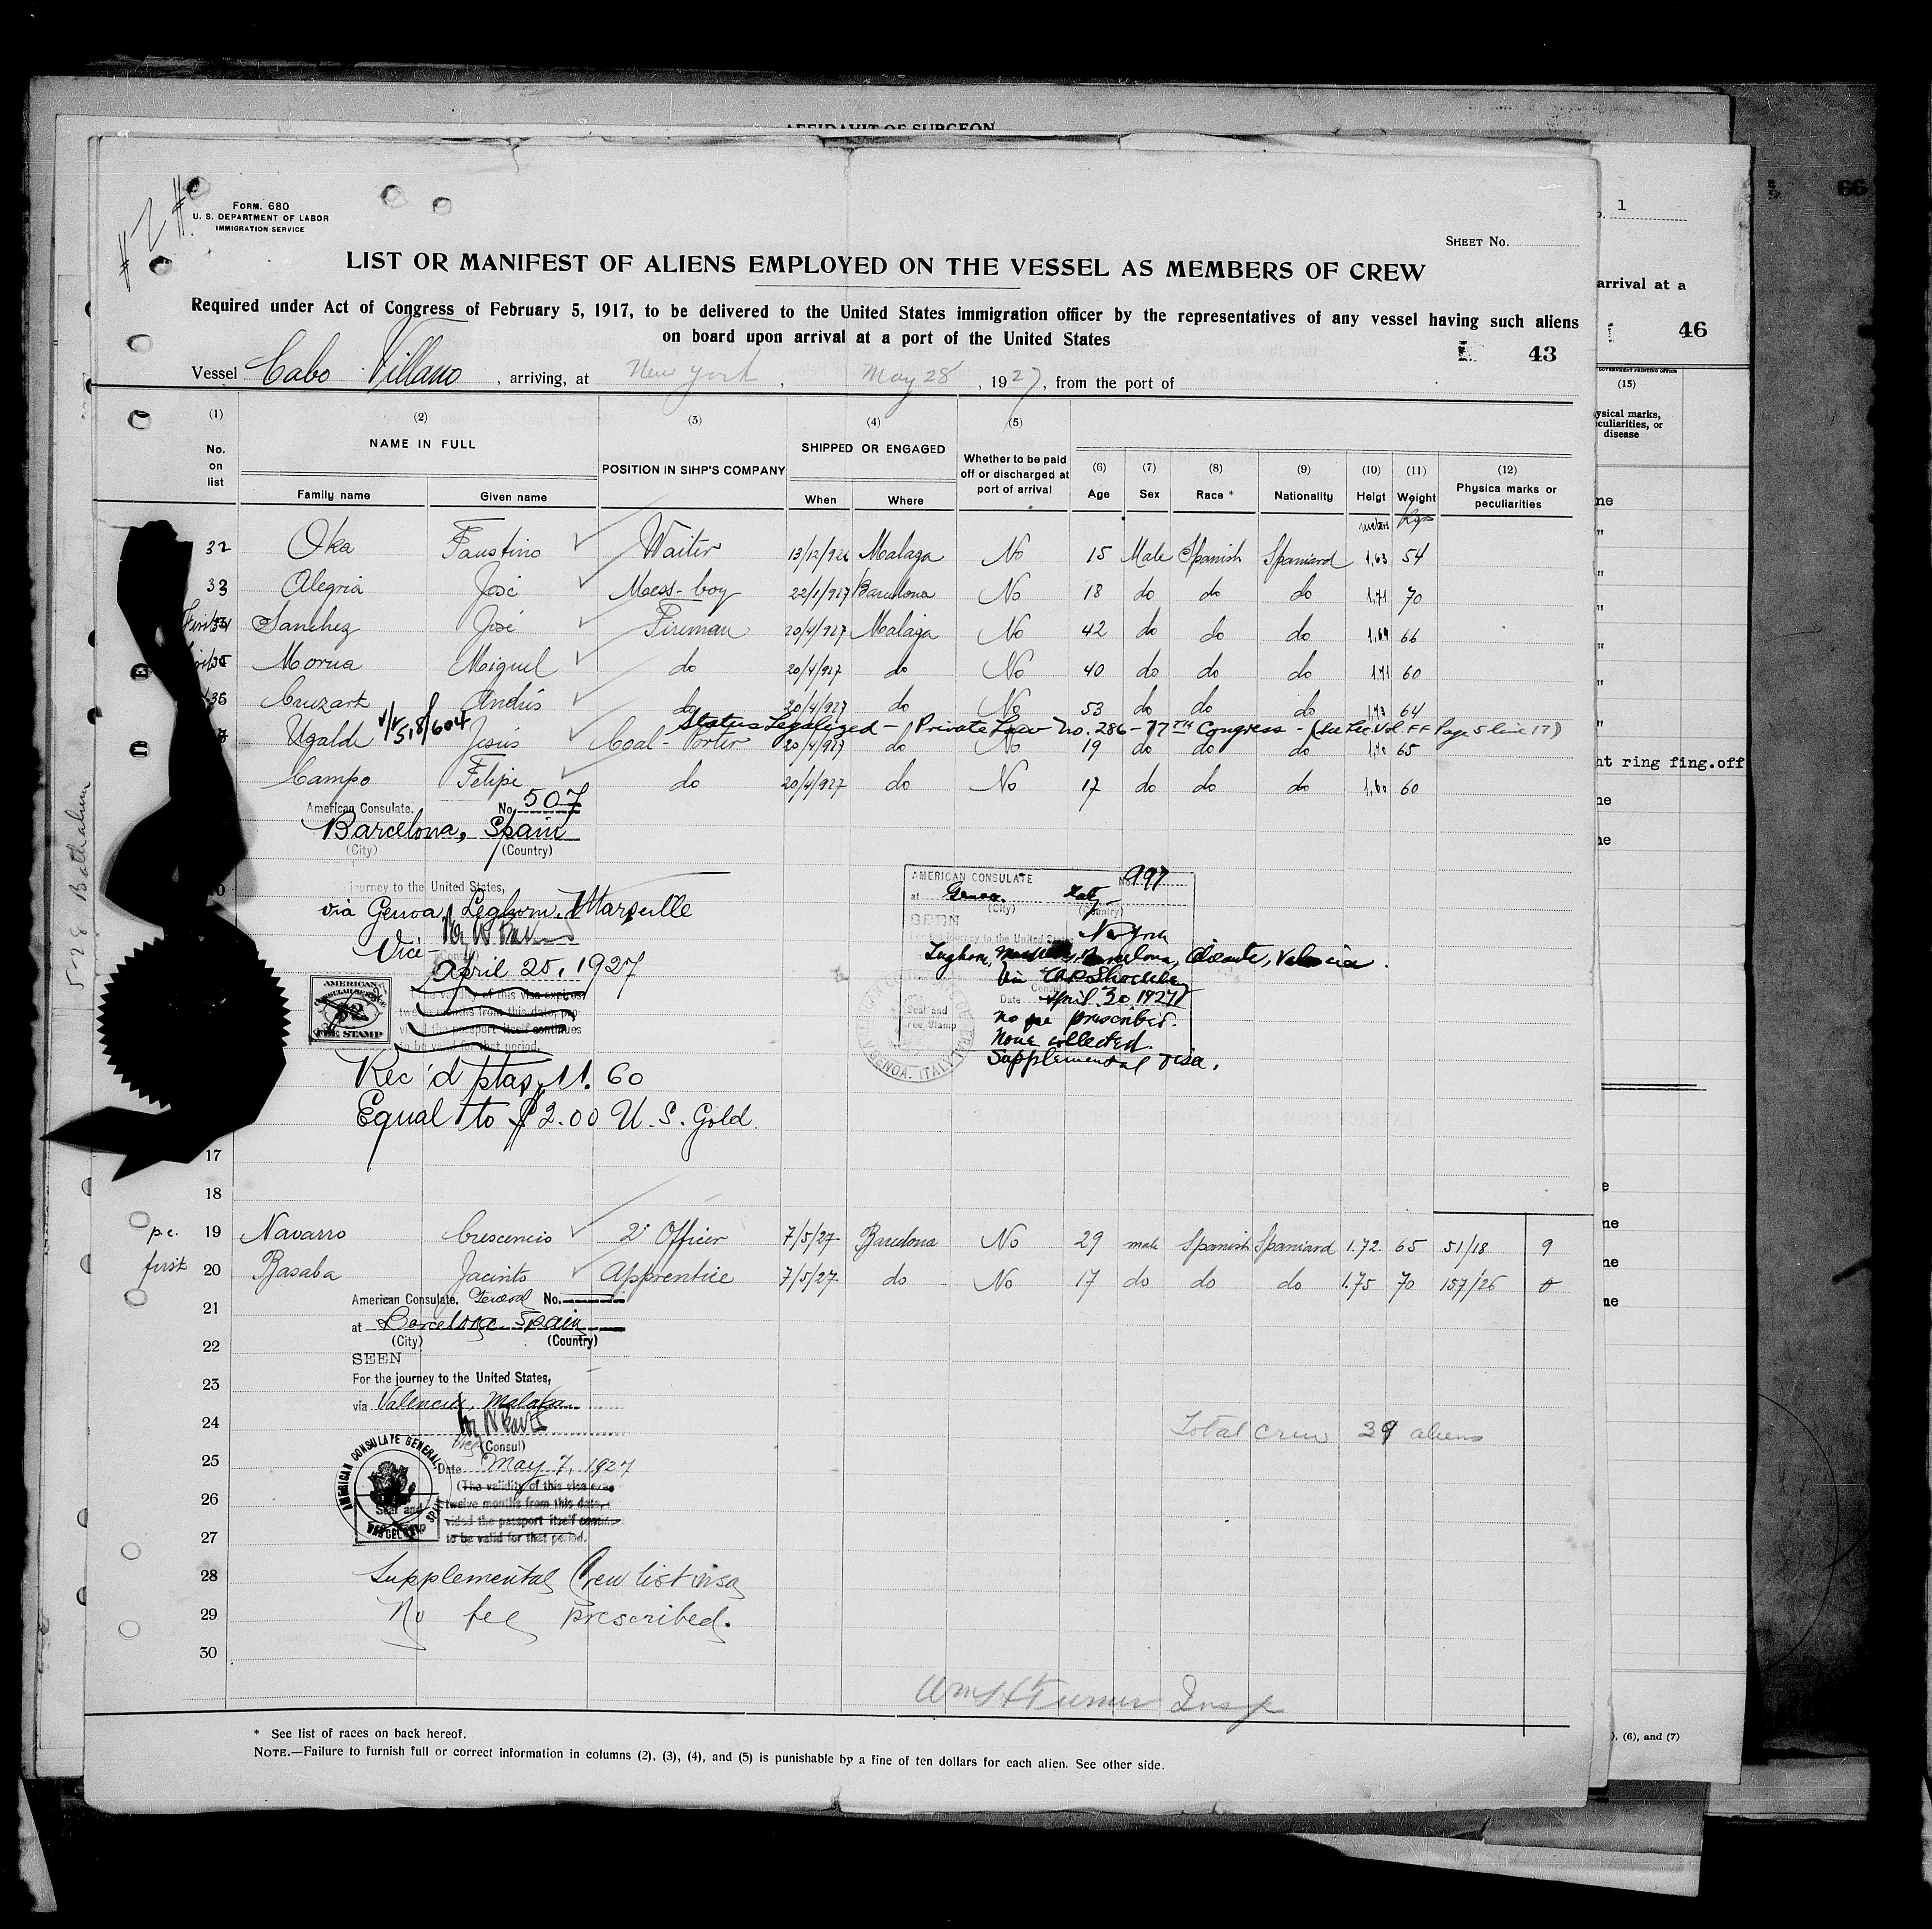 AFFIDAVIT OF SURGEON
# 2 #
FORM. 680
U. S. DEPARTMENT OF LABOR
IMMIGRATION SERVICE
SHEET No.
LIST OR MANIFEST OF ALIENS EMPLOYED ON THE VESSEL AS MEMBERS OF CREW
Required under Act of Congress of February 5, 1917, to be delivered to the United States immigration officer by the representatives of any vessel having such aliens
on board upon arrival at a port of the United States
43
Vessel Cabo Villano, arriving, at New york, May 28, 1927, from the port of
(1) (2) (3) (4) (5)
No. on list NAME IN FULL POSITION IN SIHP'S COMPANY SHIPPED OR ENGAGED Whether to be paid off or discharged at port of arrival (6) (7) (8) (9) (10) (11) (12)
Family name Given name When Where Age Sex Race * Nationality Heigt Weight Physica marks or peculiarities
meters Kgs
32 Oka Faustino Waiter 13/12/926 Malaga No 15 Male Spanish Spaniard 1,63 54
33 Alegria José Mess-boy 22/1/927 Barcelona No 18 do do do 1,71 70
Sanchez José Fireman 20/4/927 Malaga No 42 do do do 1,69 66
Morua Miguel do 20/4/927 do No 40 do do do 1,71 60
36 Cruzart Andrés do 20/4/927 do No 53 do do do 1,73 64
Status Legalized - Private Law No. 286 - 77TH Congress - Page 5 line 17)
Ugalde Jesús Coal-Porter 20/4/927 do No 19 do do do 1,70 65
Campo Felipe do 20/4/927 do No 17 do do do 1,60 60
American Consulate. No. 507
Barcelona, Spain
(City) (Country)
journey to the United States,
via Genoa, Leghorn, Marseille
Vice-
April 25, 1927
(The validity of this visa expires
twelve months from this date, pro-
vided the passport itself continues
to be valid for that period.
AMERICAN
CONSULAR SERVICE
$2
FEE STAMP
Rec'd ptas. 11.60
Equal to $2.00 U. S. Gold.
AMERICAN CONSULATE No. 997
at Genoa, Italy
(City) (Country)
SEEN
For the journey to the United States
New York
Leghorn, Barcelona, Alicante, Valencia.
Date April 30 1927
Seal and
Fee Stamp
GENOA, ITALY
No fee prescribed.
None collected.
Supplemental visa.
17
18
p.c. 19 Navarro Crescencio 2º Officer 7/5/27 Barcelona No 29 male Spanish Spaniard 1.72 65 51/18 9
first 20 Basaba Jacinto Apprentice 7/5/27 do No 17 do do do 1.75 70 157/26 0
21
American Consulate. General No.
at Barcelona Spain
(City) (Country)
22
SEEN
23
For the journey to the United States,
via Valencia, Malaga
24
Total crew 39 aliens
(Consul)
25
Date May 7, 1927
(The validity of this visa
26
twelve months from this date,
vided the passport itself
27
to be valid for that period.
AMERICAN CONSULATE GENERAL
Seal and
28
Supplemental Crew list visa
29
No fee prescribed.
30
Wm H Turner Insp
* See list of races on back hereof.
NOTE.—Failure to furnish full or correct information in columns (2), (3), (4), and (5) is punishable by a fine of ten dollars for each alien. See other side.
66
1
arrival at a
46
GOVERNMENT PRINTING OFFICE
(15)
ysical marks,
culiarities, or
disease
ne
ht ring fing.off
ne
ne
ne
ne
ne
), (6), and (7)